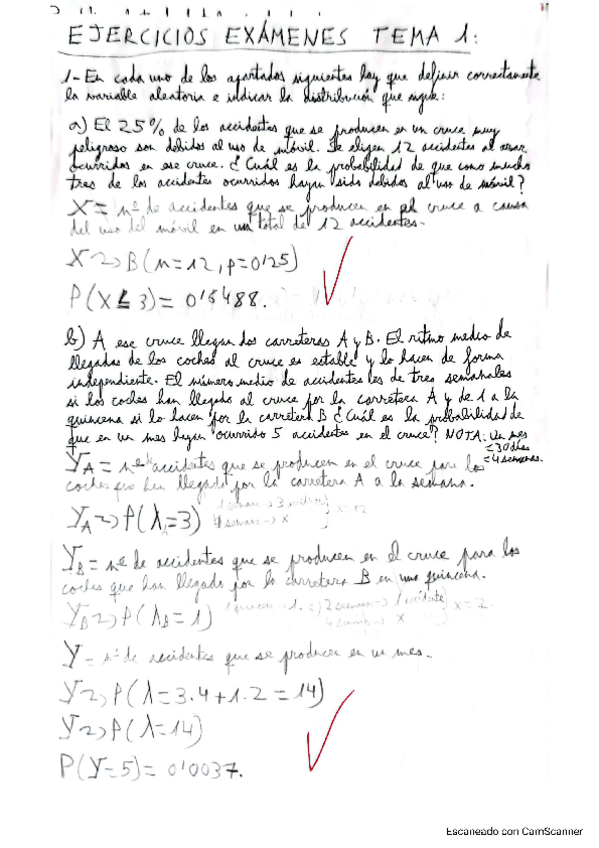 EJERCICIOS EXÁMENES TEMA 1:
1- En cada uno de los apartados siguientes hay que definir correctamente
la variable aleatoria e indicar la distribución que sigue:
a) El 25% de los accidentes que se producen en un cruce muy
peligroso son debidos al uso de móvil. Se eligen 12 accidentes al azar
ocurridos en ese cruce. ¿Cuál es la probabilidad de que como mucho
tres de los accidentes ocurridos hayan sido debidos al uso de móvil?
X = nº de accidentes que se producen en el cruce a causa
del uso del móvil en un total de 12 accidentes.
X ~> B(n=12, p=0'25)
P(X ≤ 3) = 0'6488.
b) A ese cruce llegan dos carreteras A y B. El ritmo medio de
llegadas de los coches al cruce es estable y lo hacen de forma
independiente. El número medio de accidentes es de tres semanales
si los coches han llegado al cruce por la carretera A y de 1 a la
quincena si lo hacen por la carretera B ¿Cuál es la probabilidad de
que en un mes hayan ocurrido 5 accidentes en el cruce? NOTA: Un mes
= 30 días
= 4 semanas.
YA = nº accidentes que se producen en el cruce para los
coches que han llegado por la carretera A a la semana.
YA ~> P(λ=3)
4 semanas -> x
x=12
YB = nº de accidentes que se producen en el cruce para los
coches que han llegado por la carretera B en una quincena.
YB ~> P(λB = 1)
2 semanas -> 1 accidente
4 semanas -> x
x=2.
Y = nº de accidentes que se producen en un mes.
Y ~> P(λ=3.4+1.2=14)
Y ~> P(λ=14)
P(Y=5) = 0'0037.
Escaneado con CamScanner